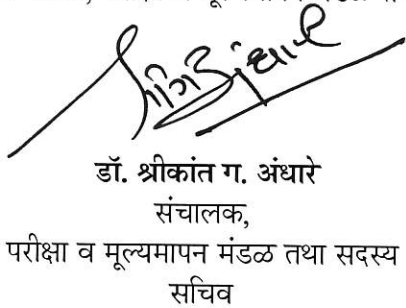 डॉ. श्रीकांत ग. अंधारे
संचालक,
परीक्षा व मूल्यमापन मंडळ तथा सदस्य
सचिव